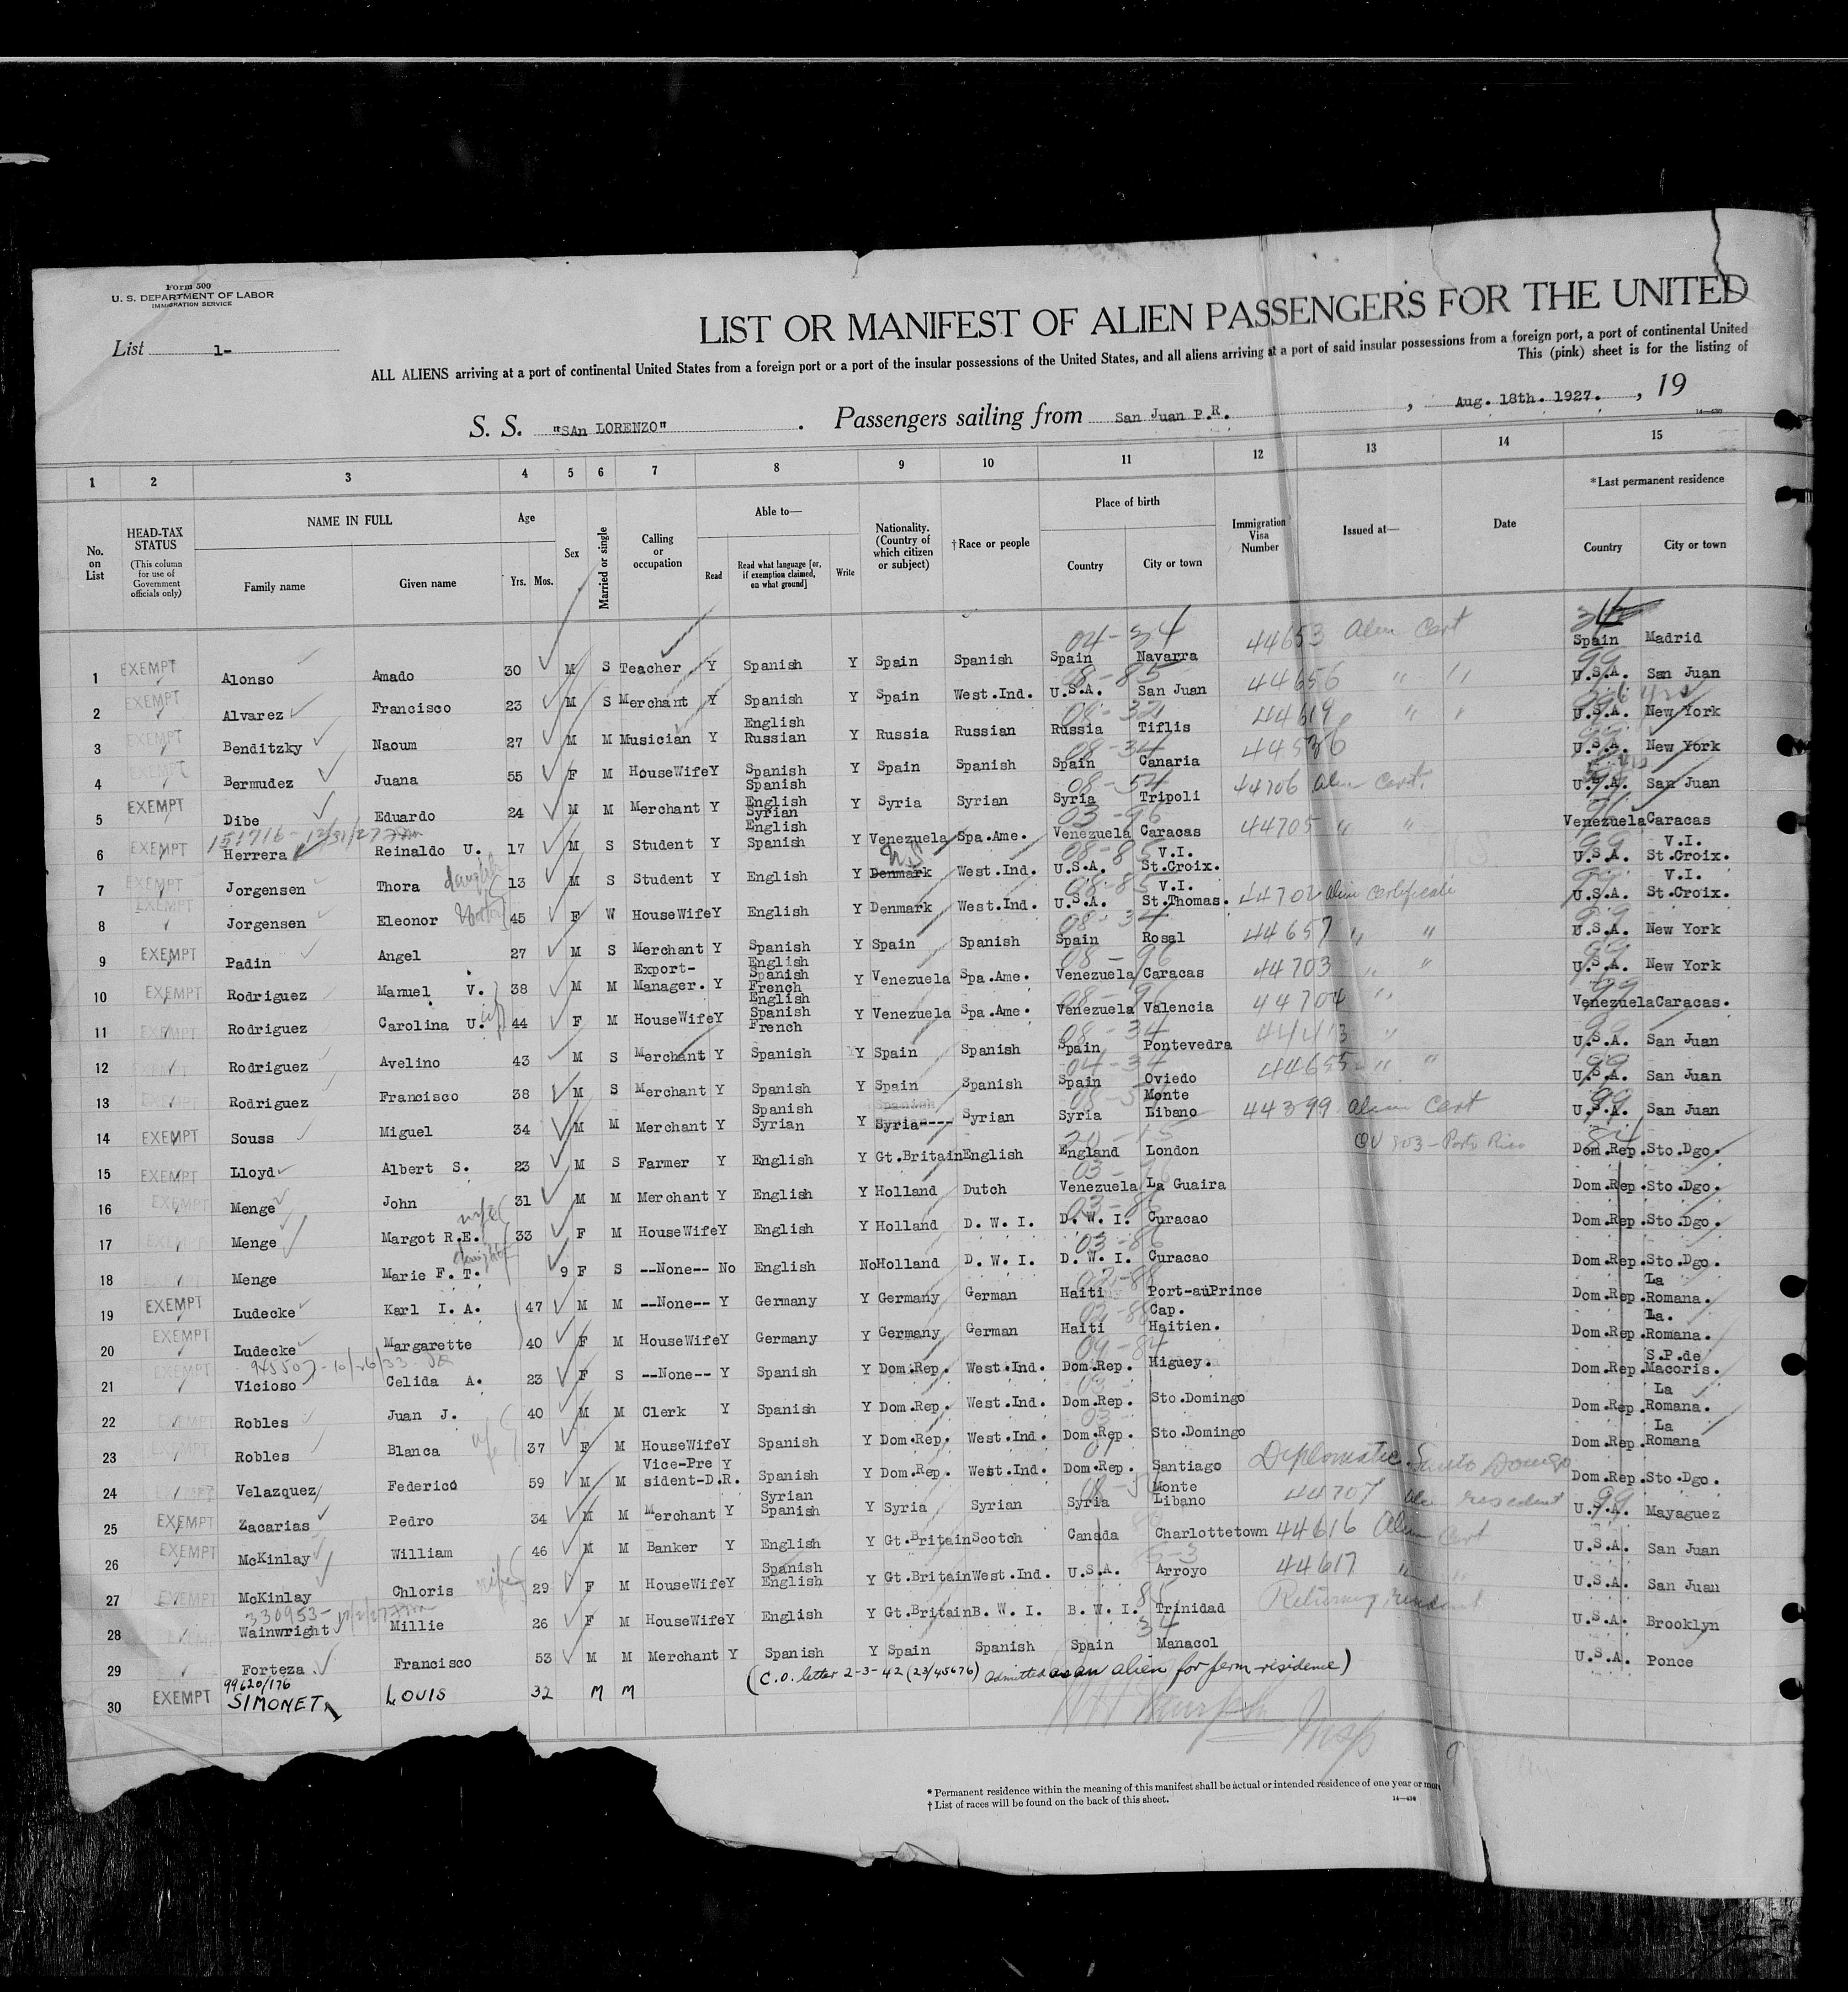 Form 500
U. S. DEPARTMENT OF LABOR
IMMIGRATION SERVICE
List 1-
LIST OR MANIFEST OF ALIEN PASSENGERS FOR THE UNITED
ALL ALIENS arriving at a port of continental United States from a foreign port or a port of the insular possessions of the United States, and all aliens arriving at a port of said insular possessions from a foreign port, a port of continental United
This (pink) sheet is for the listing of
S. S. "SAn LORENZO" . Passengers sailing from San Juan P.R. , Aug. 18th. 1927. , 19
14—430
1 2 3 4 5 6 7 8 9 10 11 12 13 14 15
No. on List
HEAD-TAX STATUS (This column for use of Government officials only)
NAME IN FULL
Family name Given name
Age
Yrs. Mos.
Sex
Married or single
Calling or occupation
Able to—
Read Read what language [or, if exemption claimed, on what ground] Write
Nationality. (Country of which citizen or subject)
†Race or people
Place of birth
Country City or town
Immigration Visa Number
Issued at—
Date
*Last permanent residence
Country City or town
1 EXEMPT Alonso Amado 30 M S Teacher Y Spanish Y Spain Spanish Spain Navarra 04-34 44653 Alien Cert Spain Madrid
2 EXEMPT Alvarez Francisco 23 M S Merchant Y Spanish Y Spain West.Ind. U.S.A. San Juan 08-85 44656 " " U.S.A. San Juan 99
3 EXEMPT Benditzky Naoum 27 M M Musician Y English Russian Y Russia Russian Russia Tiflis 08-32 44619 " " U.S.A. New York
4 EXEMPT Bermudez Juana 55 F M HouseWife Y Spanish Y Spain Spanish Spain Canaria 08-34 44536 U.S.A. New York
5 EXEMPT Dibe Eduardo 24 M M Merchant Y Spanish English Syrian Y Syria Syrian Syria Tripoli 08-54 44706 Alien Cert. U.S.A. San Juan
151716-12/31/27
6 EXEMPT Herrera Reinaldo U. 17 M S Student Y English Spanish Y Venezuela Spa.Ame. Venezuela Caracas 03-96 44705 " " Venezuela Caracas
7 EXEMPT Jorgensen Thora daughter 13 M S Student Y English Y Denmark U.S. West.Ind. U.S.A. V.I. St.Croix. 08-85 U.S.A. V.I. St.Croix. 99
8 EXEMPT Jorgensen Eleonor Mother 45 F W HouseWife Y English Y Denmark West.Ind. U.S.A. V.I. St.Thomas. 08-85 44702 Alien Certificate U.S.A. V.I. St.Croix. 99
9 EXEMPT Padin Angel 27 M S Merchant Y Spanish Y Spain Spanish Spain Rosal 08-34 44657 " " U.S.A. New York 99
10 EXEMPT Rodriguez Manuel V. 38 M M Export-Manager. Y English Spanish French Y Venezuela Spa.Ame. Venezuela Caracas 08-96 44703 " " U.S.A. New York 99
11 EXEMPT Rodriguez Carolina U. wife 44 F M HouseWife Y English Spanish French Y Venezuela Spa.Ame. Venezuela Valencia 08-96 44704 " Venezuela Caracas. 99
12 EXEMPT Rodriguez Avelino 43 M S Merchant Y Spanish Y Spain Spanish Spain Pontevedra 08-34 44413 " U.S.A. San Juan 99
13 EXEMPT Rodriguez Francisco 38 M S Merchant Y Spanish Y Spain Spanish Spain Oviedo 04-34 44655 " " U.S.A. San Juan 99
14 EXEMPT Souss Miguel 34 M M Merchant Y Spanish Syrian Y Syria---- Syrian Syria Monte Libano 44399 Alien Cert U.S.A. San Juan 99
15 EXEMPT Lloyd Albert S. 23 M S Farmer Y English Y Gt.Britain English England London QV 803 - Porto Rico Dom.Rep. Sto.Dgo. 84
16 EXEMPT Menge John 31 M M Merchant Y English Y Holland Dutch Venezuela La Guaira 03-96 Dom.Rep. Sto.Dgo.
17 EXEMPT Menge Margot R.E. wife 33 F M HouseWife Y English Y Holland D. W. I. D. W. I. Curacao 03-86 Dom.Rep. Sto.Dgo.
18 Menge Marie F. T. daughter 9 F S --None-- No English No Holland D. W. I. D. W. I. Curacao 03-86 Dom.Rep. Sto.Dgo.
19 EXEMPT Ludecke Karl I. A. 47 M M --None-- Y Germany Y Germany German Haiti Port-auPrince 02-88 Dom.Rep. La Romana.
20 EXEMPT Ludecke Margarette 40 F M HouseWife Y Germany Y Germany German Haiti Cap. Haitien. 02-88 Dom.Rep. La. Romana.
945507-10/26/33
21 EXEMPT Vicioso Celida A. 23 F S --None-- Y Spanish Y Dom.Rep. West.Ind. Dom.Rep. Higuey. 09-84 Dom.Rep. S.P.de Macoris.
22 EXEMPT Robles Juan J. 40 M M Clerk Y Spanish Y Dom.Rep. West.Ind. Dom.Rep. Sto.Domingo 03- Dom.Rep. La Romana.
23 EXEMPT Robles Blanca wife 37 F M HouseWife Y Spanish Y Dom.Rep. West.Ind. Dom.Rep. Sto.Domingo 03- Dom.Rep. La Romana
24 EXEMPT Velazquez Federico 59 M M Vice-President-D.R. Y Spanish Y Dom.Rep. West.Ind. Dom.Rep. Santiago Diplomatic. Santo Domigo Dom.Rep. Sto.Dgo.
25 EXEMPT Zacarias Pedro 34 M M Merchant Y Syrian Spanish Y Syria Syrian Syria Monte Libano 44707 Alien resident U.S.A. Mayaguez 99
26 EXEMPT McKinlay William 46 M M Banker Y English Y Gt.Britain Scotch Canada Charlottetown 44616 Alien Cert U.S.A. San Juan
27 EXEMPT McKinlay Chloris wife 29 F M HouseWife Y Spanish English Y Gt.Britain West.Ind. U.S.A. Arroyo 44617 " " U.S.A. San Juan
330953-
28 Wainwright Millie 26 F M HouseWife Y English Y Gt.Britain B. W. I. B. W. I. Trinidad Returning resident U.S.A. Brooklyn
29 Forteza Francisco 53 M M Merchant Y Spanish Y Spain Spanish Spain Manacol 34 U.S.A. Ponce
99620/176
(C.O. letter 2-3-42 (23/45676) admitted as an alien for perm-residence)
30 EXEMPT SIMONET LOUIS 32 M M
Insp
* Permanent residence within the meaning of this manifest shall be actual or intended residence of one year or more
† List of races will be found on the back of this sheet.
14—430